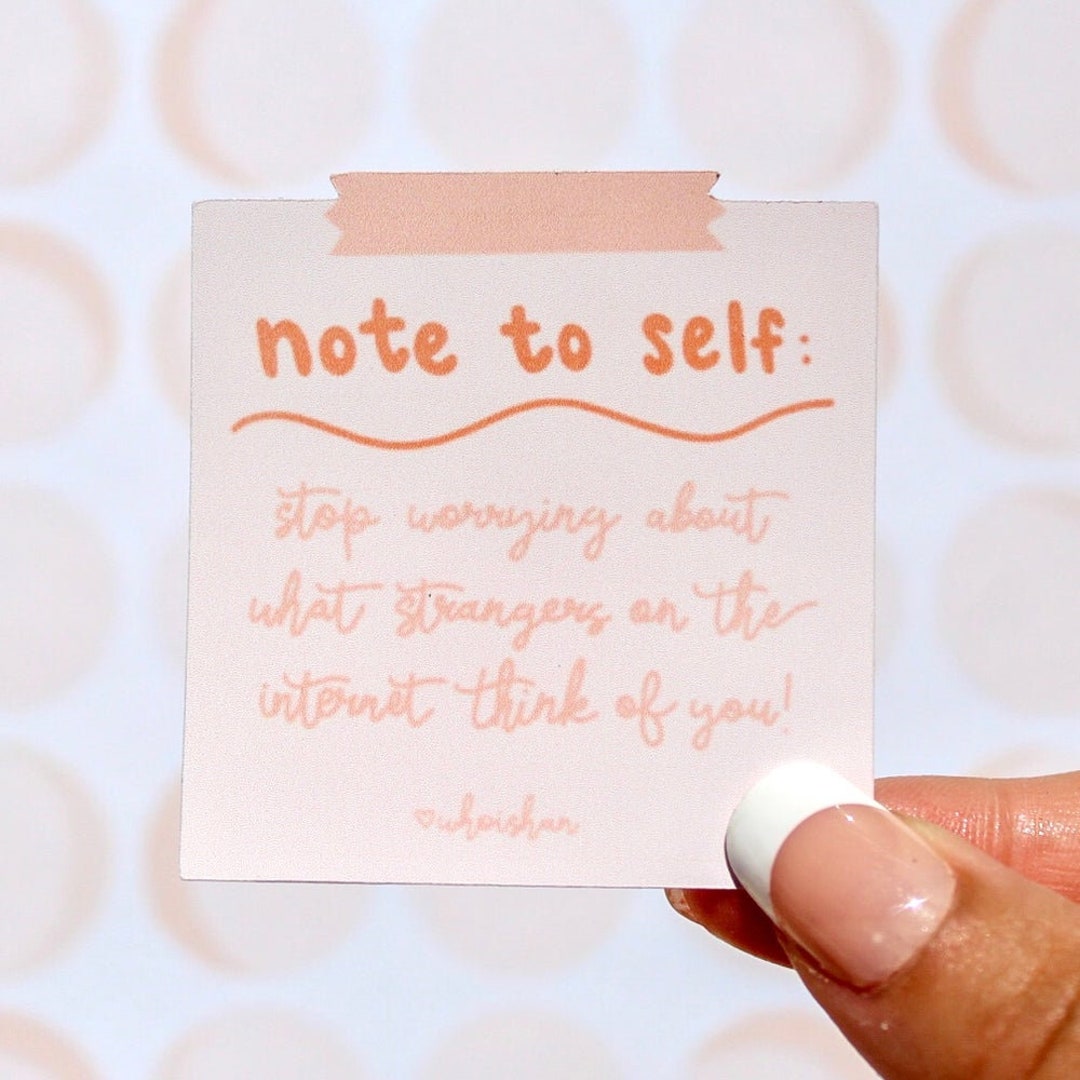 note to self:
stop worrying about
what strangers on the
internet think of you!
♡whoishan